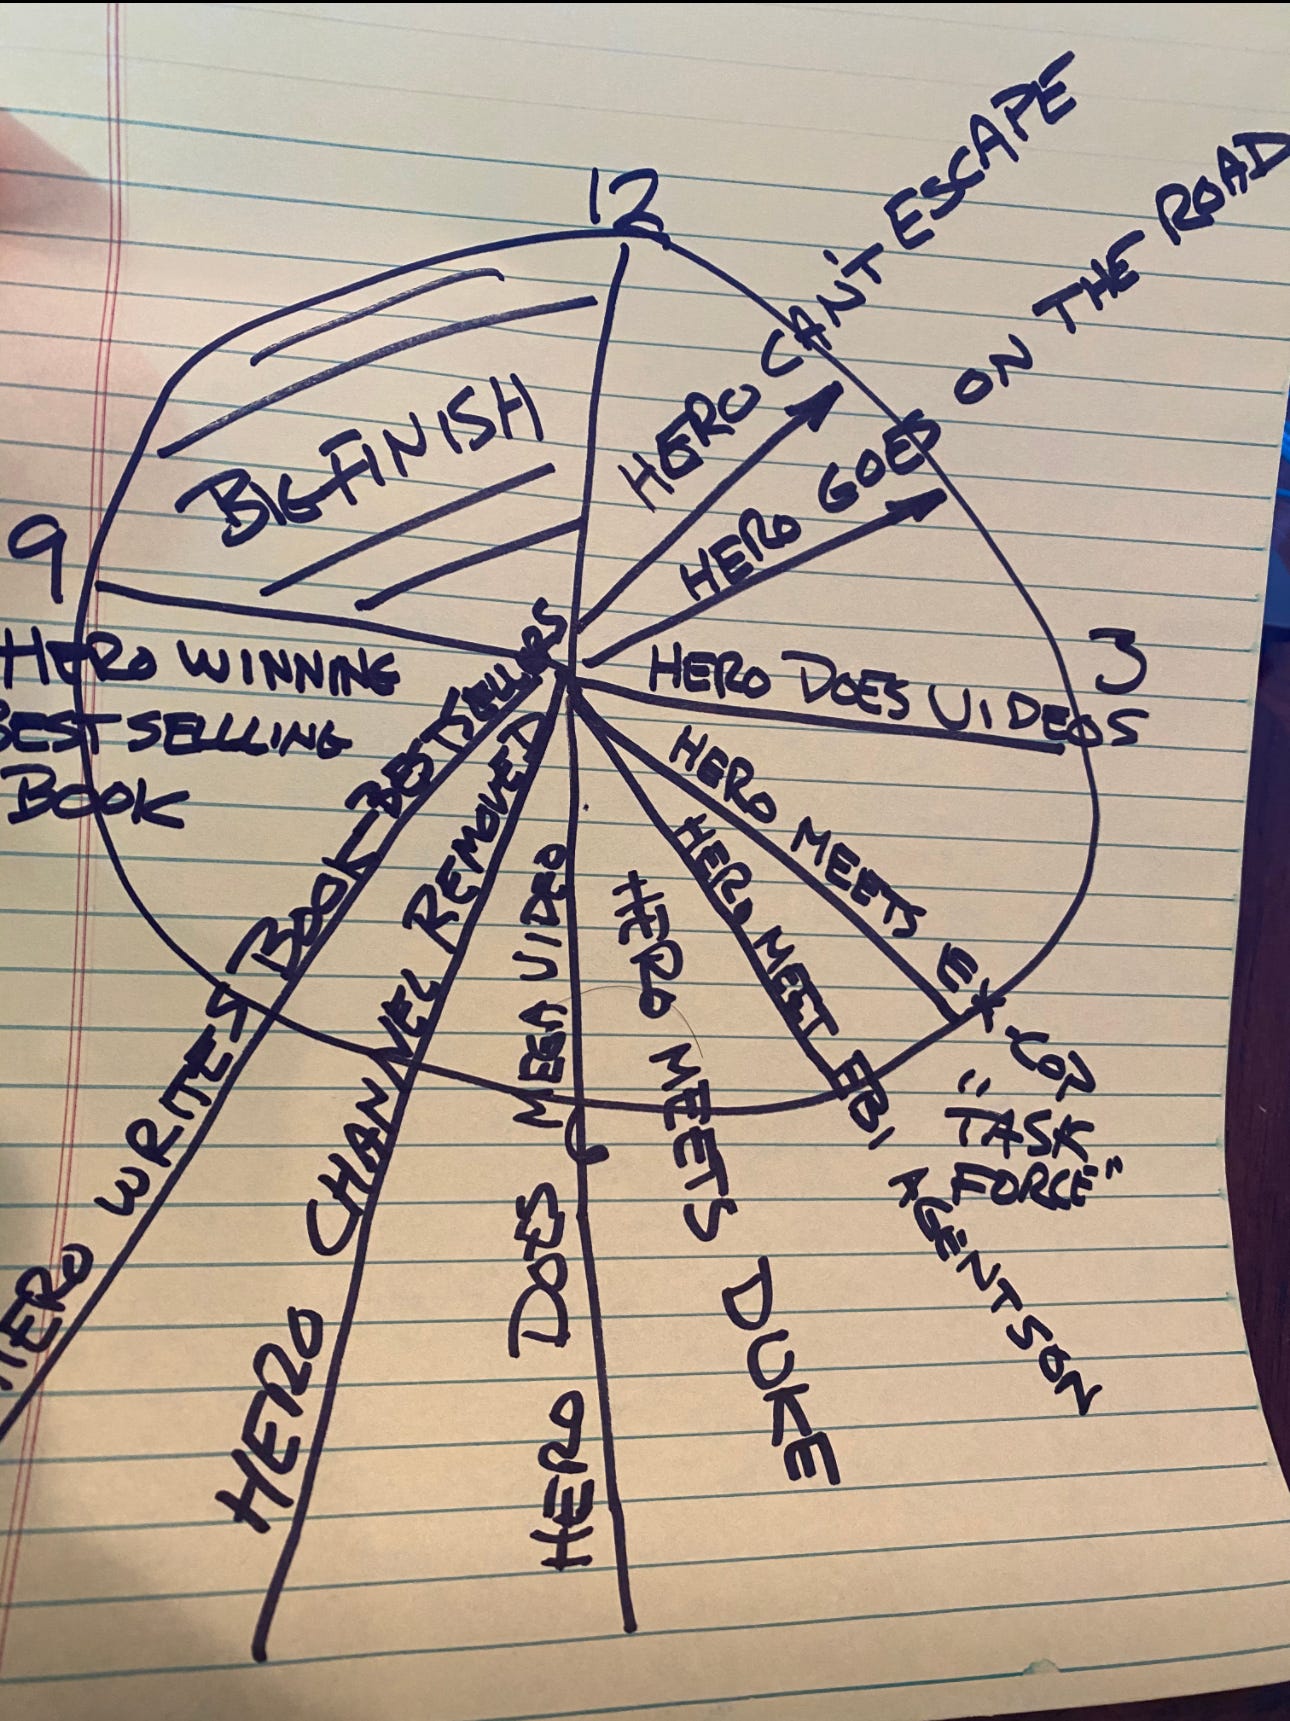 12
HERO CAN'T ESCAPE
HERO GOES ON THE ROAD
3
HERO DOES VIDEOS
HERO MEETS EX-COP
"TASK
FORCE"
HERO MEET FBI AGENT SON
HERO MEETS DUKE
6
HERO DOES MEGA VIDEO
HERO CHANNEL REMOVED
HERO WRITES BOOK-BESTSELLARS
HERO WINNING
BEST SELLLING
BOOK
9
BIG FINISH